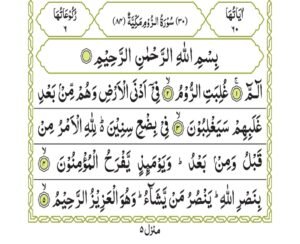 اٰيَاتُهَا ٦٠ (٣٠) سُوْرَةُ الرُّوْمِ مَكِّيَّةٌ (٨٣) رُكُوْعَاتُهَا ٦
بِسْمِ اللّٰهِ الرَّحْمٰنِ الرَّحِيْمِ
الٓمّٓ ۝١ غُلِبَتِ الرُّوْمُ ۝٢ فِيْۤ اَدْنَى الْاَرْضِ وَهُمْ مِّنْۢ بَعْدِ
غَلَبِهِمْ سَيَغْلِبُوْنَ ۝٣ فِيْ بِضْعِ سِنِيْنَ ؕ لِلّٰهِ الْاَمْرُ مِنْ
قَبْلُ وَمِنْۢ بَعْدُ ؕ وَيَوْمَئِذٍ يَّفْرَحُ الْمُؤْمِنُوْنَ ۝٤
بِنَصْرِ اللّٰهِ ؕ يَنْصُرُ مَنْ يَّشَآءُ ؕ وَهُوَ الْعَزِيْزُ الرَّحِيْمُ ۝٥
منزل ٥